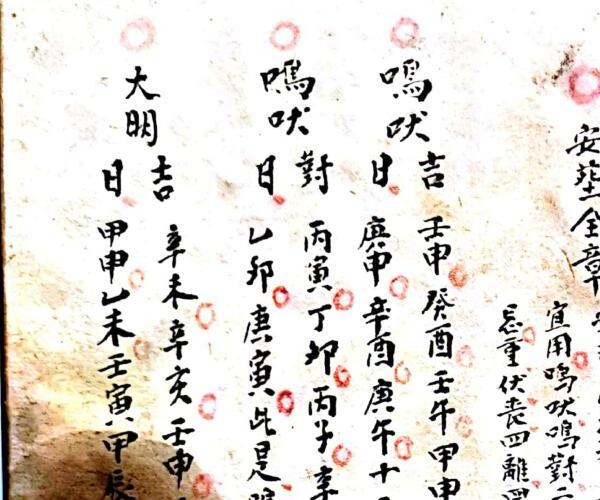 安塟全章
宜用鳴吠鳴對
忌重伏丧四離
鳴吠
吉日
壬申癸酉壬午甲申
庚申辛酉庚午十
鳴吠
對日
丙寅丁卯丙子
乙卯庚寅此是
大明
吉日
辛未辛亥壬申
甲申乙未壬寅甲辰